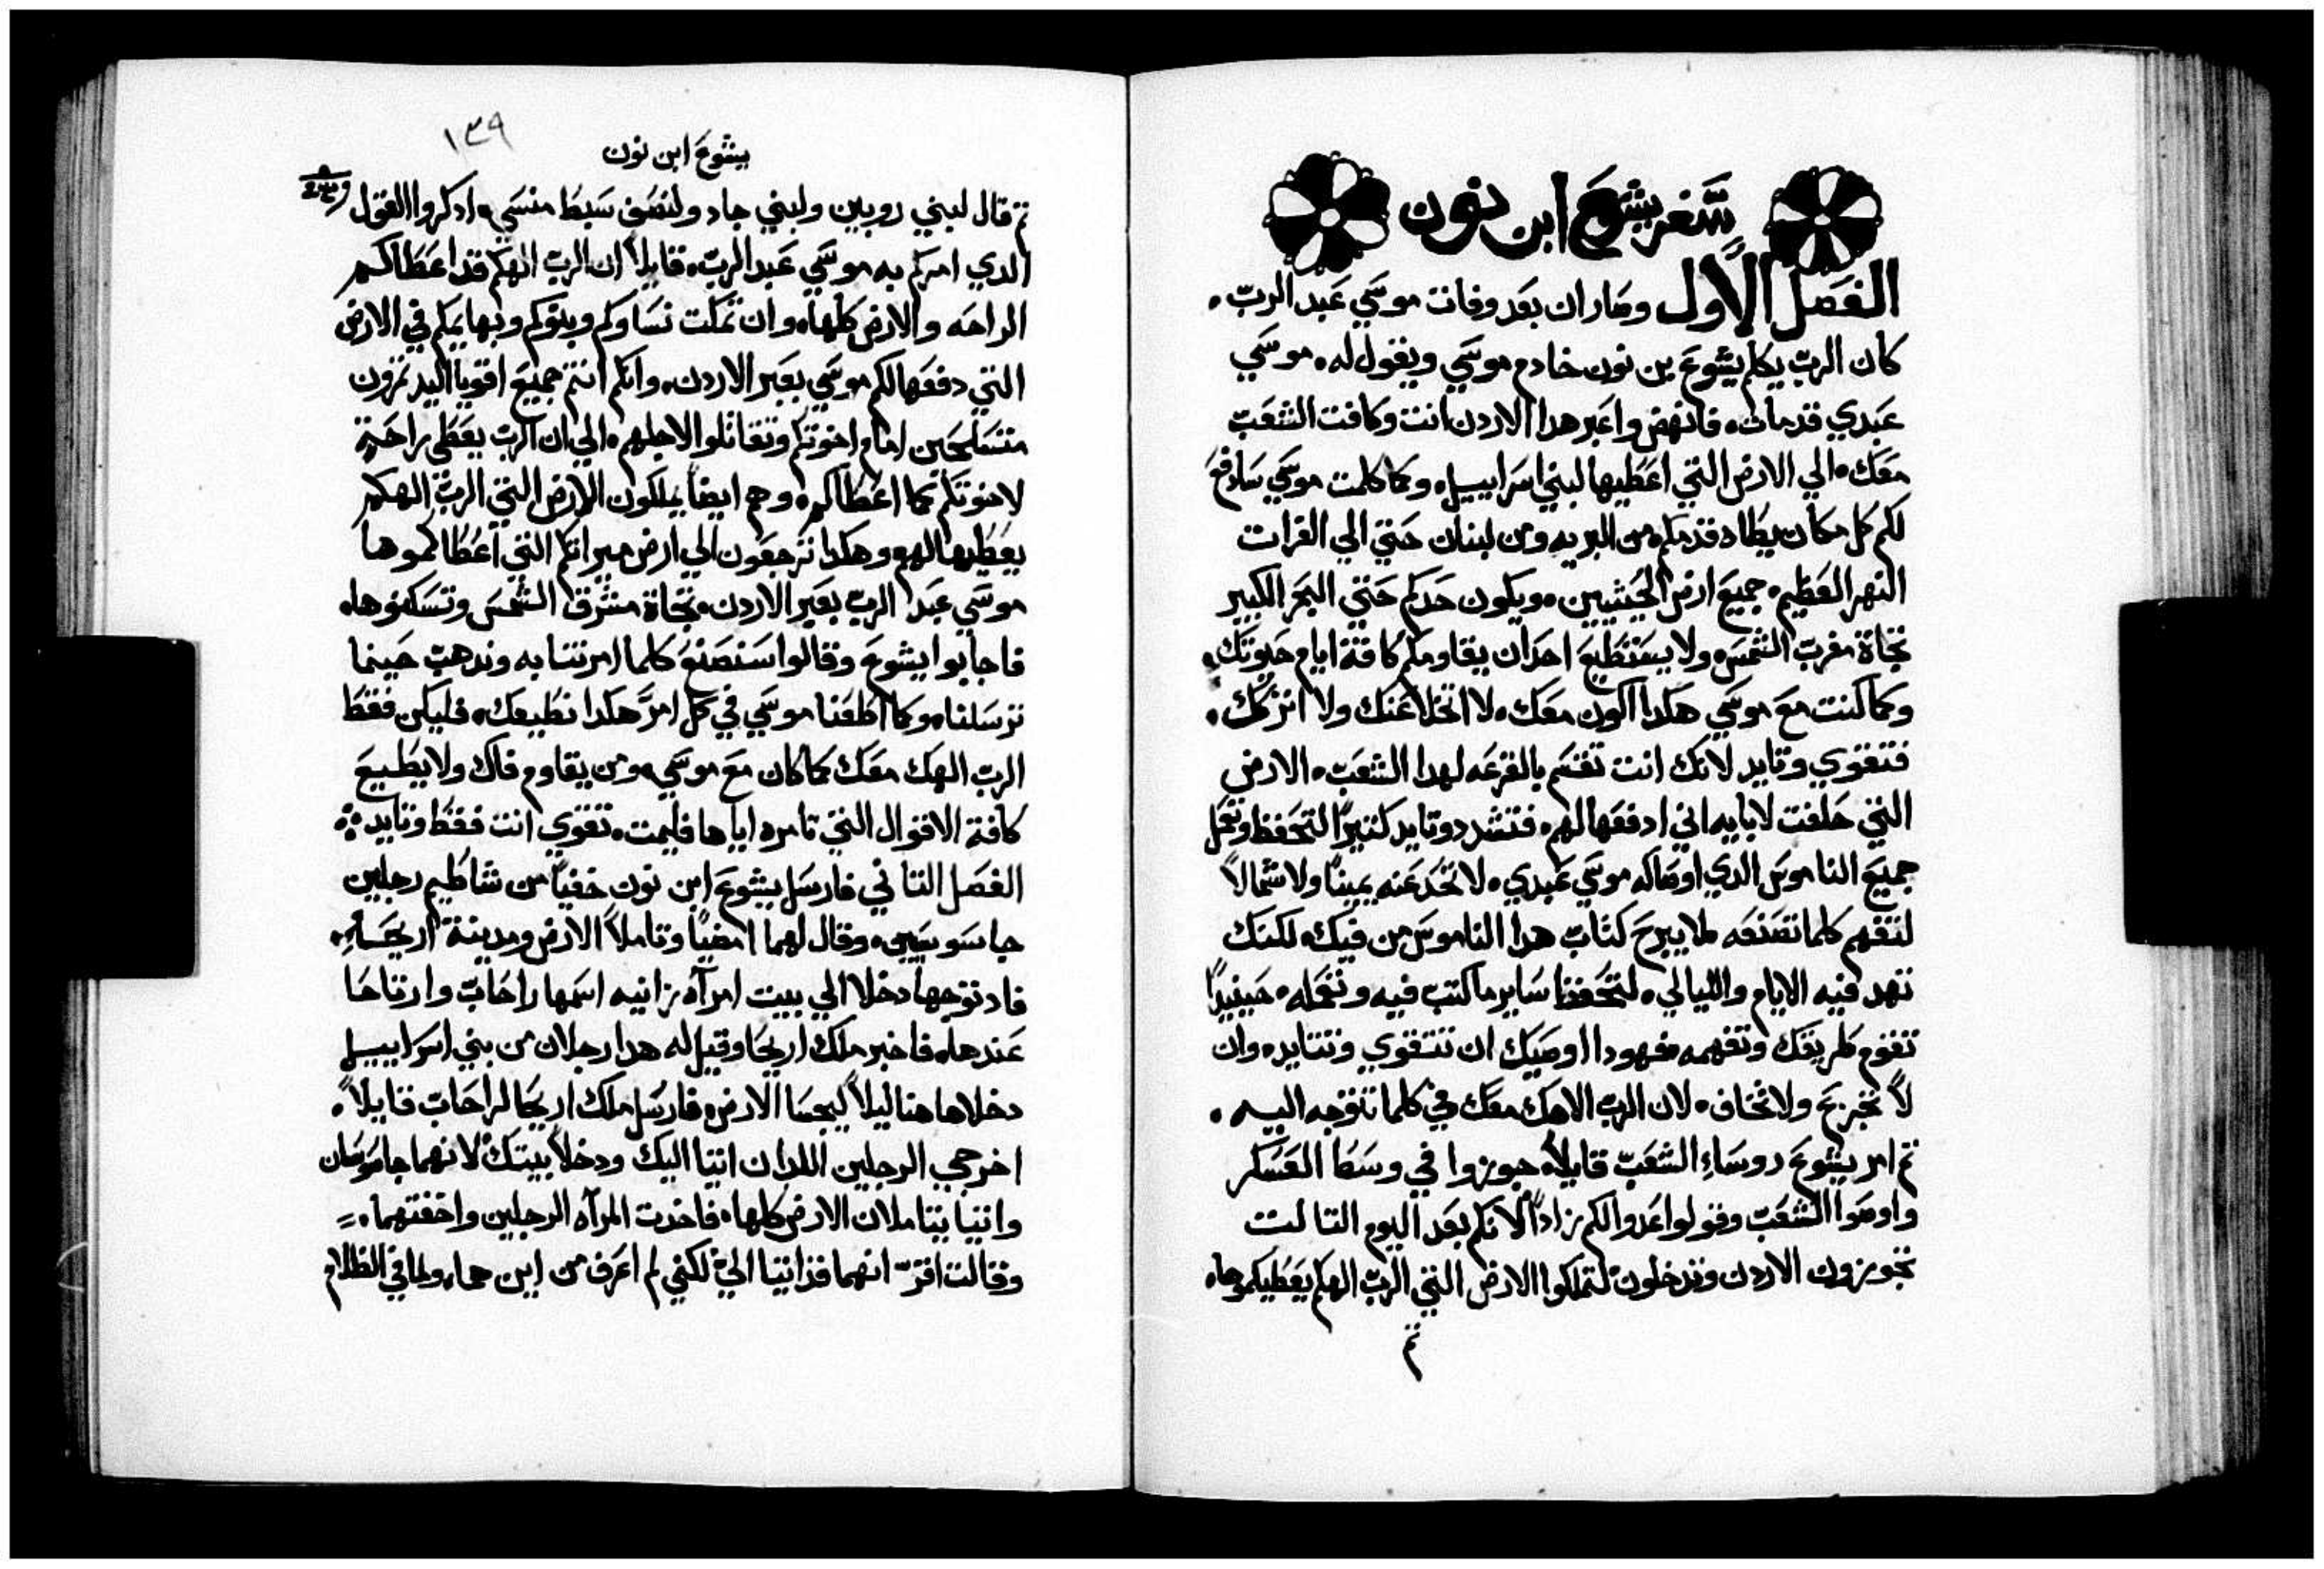 سفر يشوع ابن نون
الفصل الاول وصار ان بعد وفات موسي عبد الرب.
كان الرب يكلم يشوع بن نون خادم موسي ويقول له. موسي
عبدي قد مات. فانهض واعبر هدا الاردن انت وكافت الشعب
معك. الي الارض التي اعطيها لبني اسراييل. وكما كلمت موسي سادفع
لكم كل مكان يطاه قدمكم. من البريه ومن لبنان حتي الي الفرات
النهر العظيم. جميع ارض الحيثيين. ويكون حدكم حتي البحر الكبير
تجاة مغرب الشمس. ولا يستطيع احدان يقاومكم كافة ايام حيوتك.
وكما كنت مع موسي هكدا اكون معك. لا اتخلا عنك ولا اتركك.
فتقوي وتايد لانك انت تقسم بالقرعه لهدا الشعب. الارض
التي حلفت لابايه اني ادفعها لهم. فتشدد وتايد كتيرًا لتحفظ وتعمل
جميع الناموس الدي اوصاك موسي عبدي. لا تحد عنه يمينًا ولا شمالاً
لتفهم كلما تصنعه لا يبرح كتاب هدا الناموس من فيك. لكنك
تهد فيه الايام والليالي. لتحفظ ساير ما كتب فيه وتعمله. حينيدًا
تقوم طريقك وتفهمه فهودا اوصيك ان تتقوي وتتايد. وان
لا تجزع ولا تخاف. لان الرب الاهك معك في كلما تتوجه اليه.
تم امر يشوع روساء الشعب قايلاً. جوزوا في وسط العسكر
واوصوا الشعب وقولوا اعدوا لكم زادًا لانكم بعد اليوم التالت
تجوزون الاردن وتدخلون لتملكوا الارض التي الرب الهكم يعطيكموها.
تم
١٣٩
يشوع ابن نون
تم قال لبني روبين ولبني جاد ولنصف سبط منسي. ادكروا القول
الدي امركم به موسي عبد الرب. قايلاً ان الرب الهكم قد اعطاكم
الراحه والارض كلها. وان تمكت نساوكم وبنوكم وبهايمكم في الارض
التي دفعها لكم موسي بعبر الاردن. وانكم انتم جميع اقويا اليد تمرون
متسلحين امام اخوتكم وتقاتلوا لاجلهم. الي ان الرب يعطي راحة
لاخوتكم كما اعطاكم. وهم ايضًا يملكون الارض التي الرب الهكم
يعطيها لهم وهكدا ترجعون الي ارض ميراتكم التي اعطاكموها
موسي عبد الرب بعبر الاردن. تجاة مشرق الشمس وتسكنوها.
فاجابوا يشوع وقالوا سنصنع كلما امرتنا به وندهب حينما
ترسلنا. وكما اطعنا موسي في كل امرٍ هكدا نطيعك. فليكن فقط
الرب الهك معك كما كان مع موسي. ومن يقاوم فاك ولا يطيع
كافة الاقوال التي تامره اياها فليمت. تقوي انت فقط وتايد
الفصل التاني فارسل يشوع ابن نون خفيًا من شاطيم رجلين
جاسوسيين. وقال لهما امضيًا وتاملاً الارض ومدينة اريحا.
فاد توجها دخلا الي بيت امرآه زانيه اسمها راحاب وارتاحا
عندها. فاخبر ملك اريحا وقيل له هدا رجلان من بني اسراييل
دخلا هاهنا ليلاً ليجسا الارض. فارسل ملك اريحا لراحاب قايلاً.
اخرجي الرجلين اللدان اتيا اليك ودخلا بيتك لانهما جاسوسان
واتيا يتاملان الارض كلها. فاخدت المرآه الرجلين واخفتهما.
وقالت اقر انهما قد اتيا الي لكني لم اعرف من اين هما. ولما في الظلام